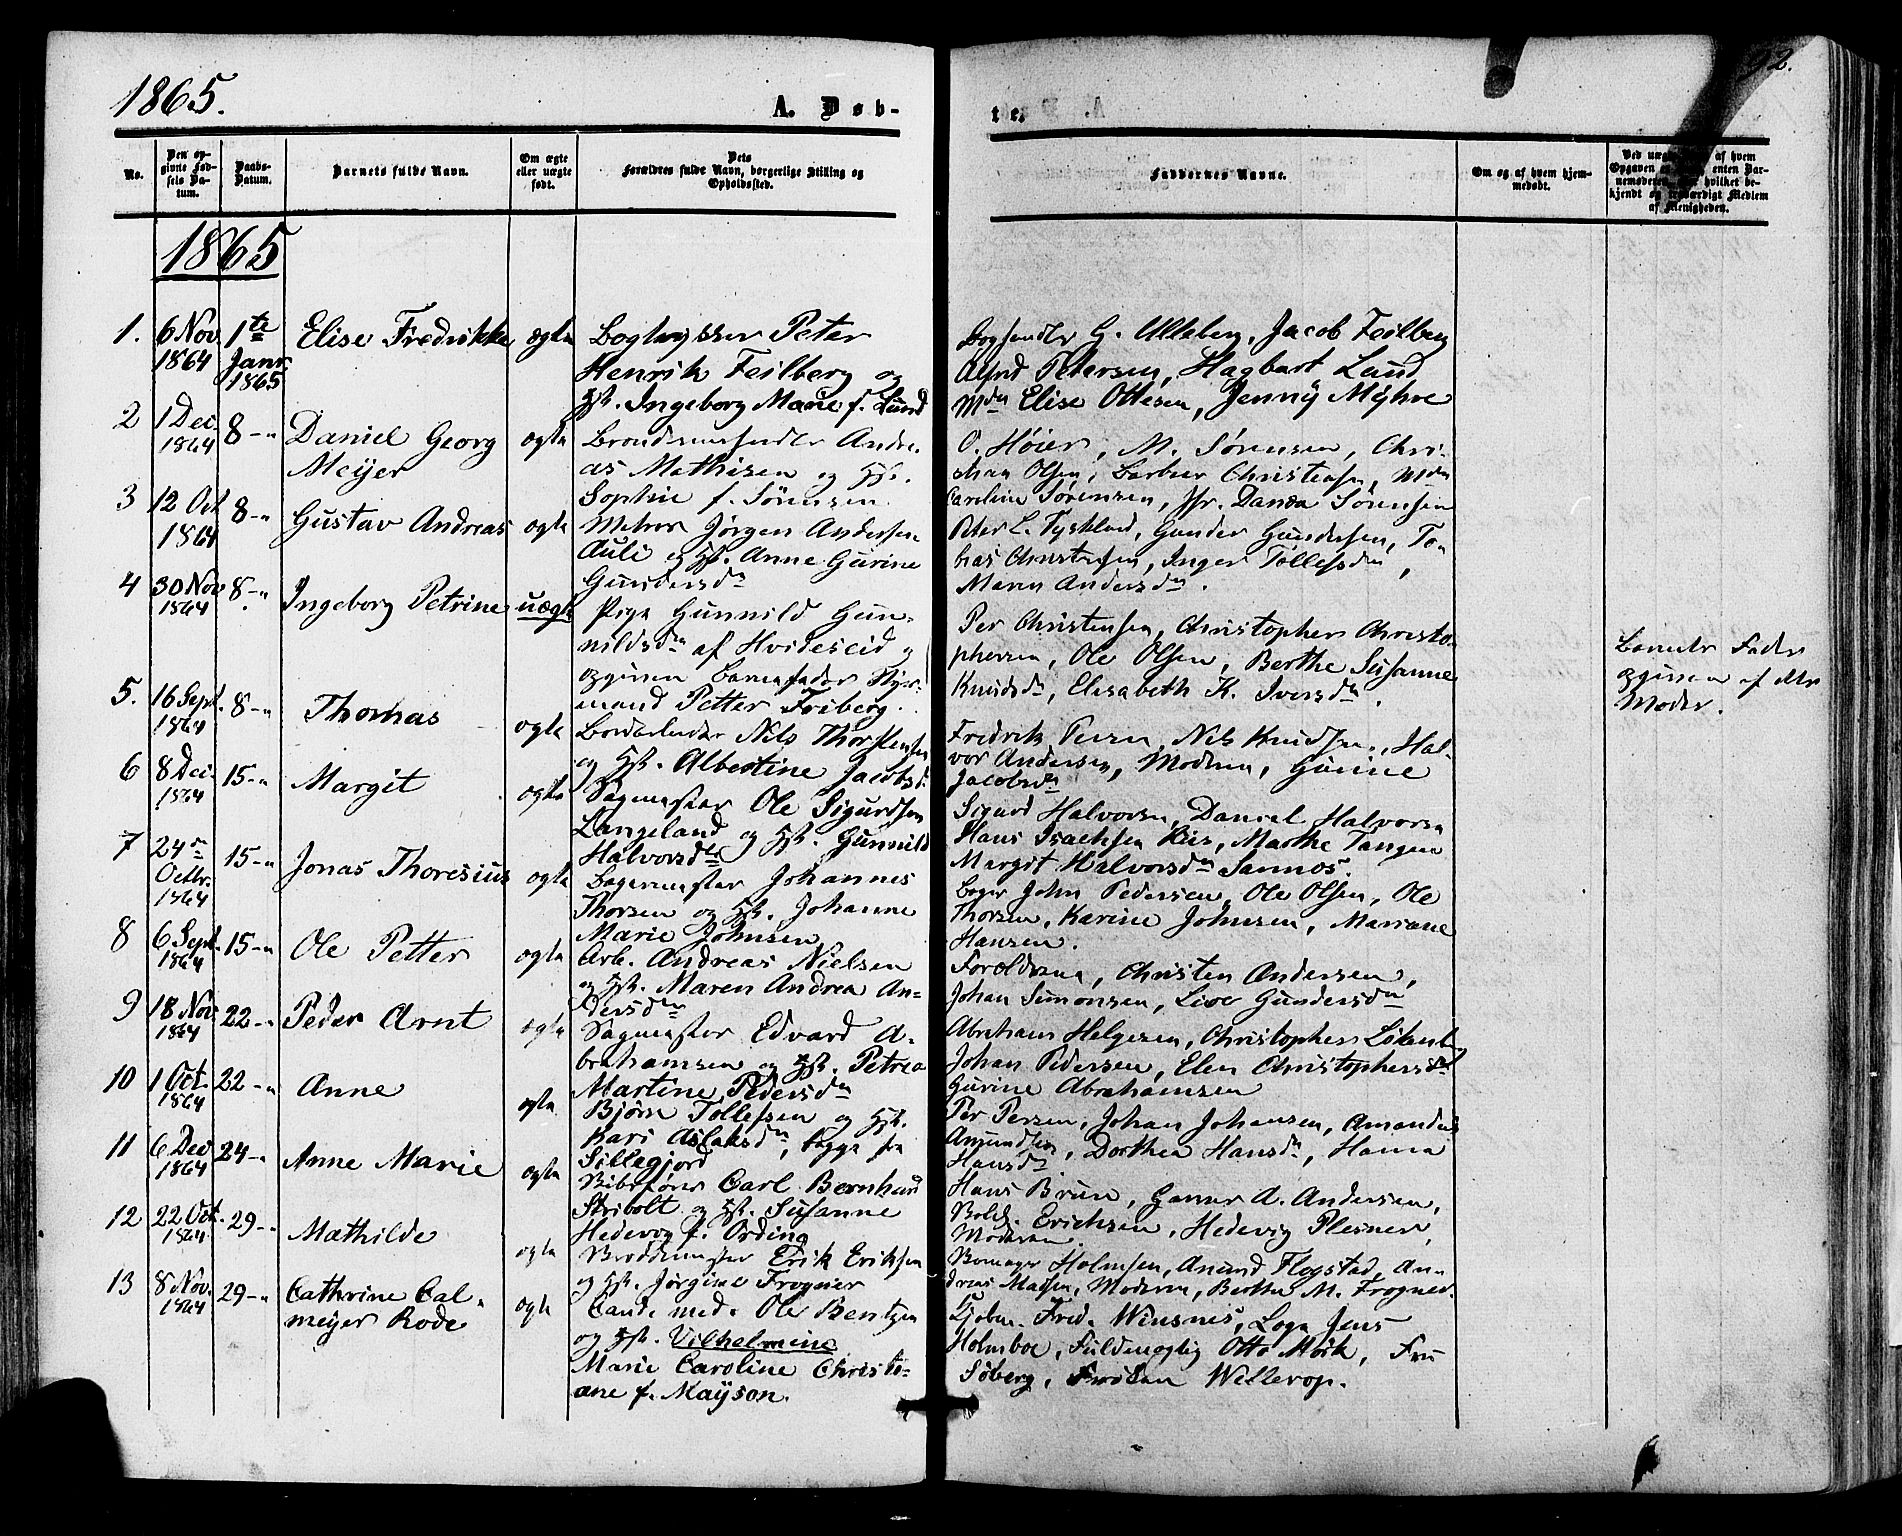 1865.
A. Døb-
te.
A. D
92.
No.
Den op-
givne Fød-
sels Da-
tum.
Daabs-
Datum.
Barnets fulde Navn.
Om ægte
eller uægte
født.
Dets
Forældres fulde Navn, borgerlige Stilling og
Opholdssted.
Faddernes Navne.
Om og af hvem hjem-
medøbt.
Ved uægte af hvem
Opgaven enten Bar-
nemoderen hvilket be-
kjendt og troværdigt Medlem
af Menigheden.
1865
1. 6 Nov 1864
1te Janr. 1865
Elise Fredrikke
ægte
Peter
Henrik Feilberg og
Hst. Ingeborg Marie f. Lund
G. Ulleberg, Jacob Feilberg
Alfred Petersen, Hagbart Lund
Mdm Elise Ottesen, Jenny Myhre
2 1 Dec. 1864
8 -"
Daniel Georg
Meyer
ægte
Andre-
as Mathisen og Hst.
Sophie f. Sørensen
O. Høier, M. Sørensen, Chri-
stian Olsen, Barbeer Christensen, Mdm
Caroline Sørensen, Jfr. Danda Sørensen
3 12 Oct 1864
8 -"
Gustav Andreas
ægte
Matros Jørgen Andersen
Auli og Hst. Anne Gurine
Gundersdn
Peter L. Tyskland, Gunder Gundersen, To-
bias Christensen, Inger Tollefsdn,
Maren Andersdn.
4 30 Nov 1864
8 -"
Ingeborg Petrine
uægte
Pige Gunnild Gun-
nildsdn af Hvideseid og
opgiven Barnefader Styr-
mand Petter Friberg.
Per Christensen, Christopher Christo-
phersen, Ole Olsen, Berthe Susanne
Knudsdn, Elisabeth K. Iversdn.
Barnets Fader
opgiven af dets
Moder.
5. 16 Sept. 1864
8 -"
Thomas
ægte
Nils Thorstensen
og Hst. Albertine Jacobsd.
Fredrik Persen, Nils Knudsen, Hal-
vor Andersen, Moderen, Gurine
Jacobsdn
6 8 Dec. 1864
15 -"
Margit
ægte
Sagmester Ole Sigurdsen
Langeland og Hst. Gunnild
Halvorsdn
Sigurd Halvorsen, Daniel Halvorsen
Hans Isachsen Riis, Marthe Tangen
Margit Halvorsdn Sannos.
7 24de Octbr. 1864
15 -"
Jonas Thoresius
ægte
Bagermester Johannes
Thorsen og Hst. Johanne
Marie Johnsen
Bager John Pedersen, Ole Olsen, Ole
Thorsen, Karine Johnsen, Mariane
Hansen.
8 6 Sept. 1864
15 -"
Ole Petter
ægte
Arb. Andreas Nielsen
og Hst. Maren Andrea An-
dersdn
Forældrene, Christen Andersen,
Johan Simonsen, Live Gundersdn
9 18 Nov 1864
22 -"
Peder Arnt
ægte
Sagmester Edvard A-
brahamsen og Hst. Petrea
Martine Pedersdn
Abraham Helgesen, Christopher
Johan Pedersen, Elen Christophersdn
Gurine Abrahamsen
10 1 Oct. 1864
22 -"
Anne
ægte
Bjørn Tollefsen og Hst.
Kari Aslaksdn, begge fra
Sillegjord
Per Persen, Johan Johansen, Amandus
Amundsen, Dorthea Hansdn, Hanna
Hansdn
11 6 Dec 1864
24 -"
Anne Marie
ægte
Carl Bernhard
Skribolt og Hst. Susanne
Hedevig f. Ording
Hans Brun, Garver A. Andersen,
Erichsen, Hedevig Plesner,
Moderen.
12 22 Oct. 1864
29 -"
Mathilde
ægte
Erik Eriksen
og Hst. Jørgine Frogner
Holmsen, Anund Flogstad, An-
dreas Madsen, Moderen, Berthe M. Frogner.
13 8 Nov. 1864
29 -"
Cathrine Cal-
meyer Rode
ægte
Cand. med. Ole Bentzen
og Hst. Vilhelmine
Marie Caroline Christi-
ane f. Mayson.
Kjøbm. Fred. Winsnes, Læge Jens
Holmboe, Fuldmægtig Otto Mørk, Fru
Søberg, Frøken Willerop.